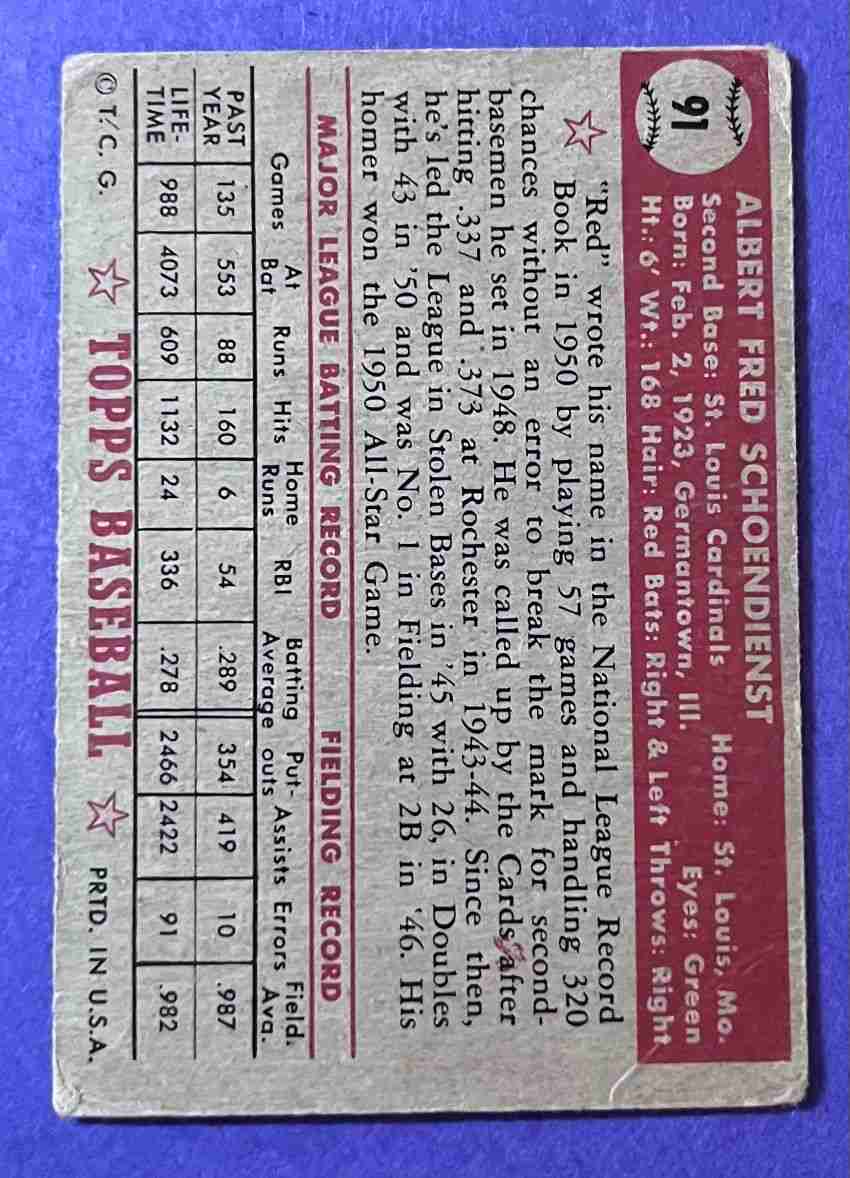 91
ALBERT FRED SCHOENDIENST
Second Base: St. Louis Cardinals Home: St. Louis, Mo.
Born: Feb. 2, 1923, Germantown, Ill. Eyes: Green
Ht.: 6' Wt.: 168 Hair: Red Bats: Right & Left Throws: Right
"Red" wrote his name in the National League Record
Book in 1950 by playing 57 games and handling 320
chances without an error to break the mark for second-
basemen he set in 1948. He was called up by the Cards after
hitting .337 and .373 at Rochester in 1943-44. Since then,
he's led the League in Stolen Bases in '45 with 26, in Doubles
with 43 in '50 and was No. 1 in Fielding at 2B in '46. His
homer won the 1950 All-Star Game.
MAJOR LEAGUE BATTING RECORD FIELDING RECORD
Games At Bat Runs Hits Home Runs RBI Batting Average Put-outs Assists Errors Field. Avg.
PAST YEAR 135 553 88 160 6 54 .289 354 419 10 .987
LIFE-TIME 988 4073 609 1132 24 336 .278 2466 2422 91 .982
© T. C. G. TOPPS BASEBALL PRTD. IN U.S.A.